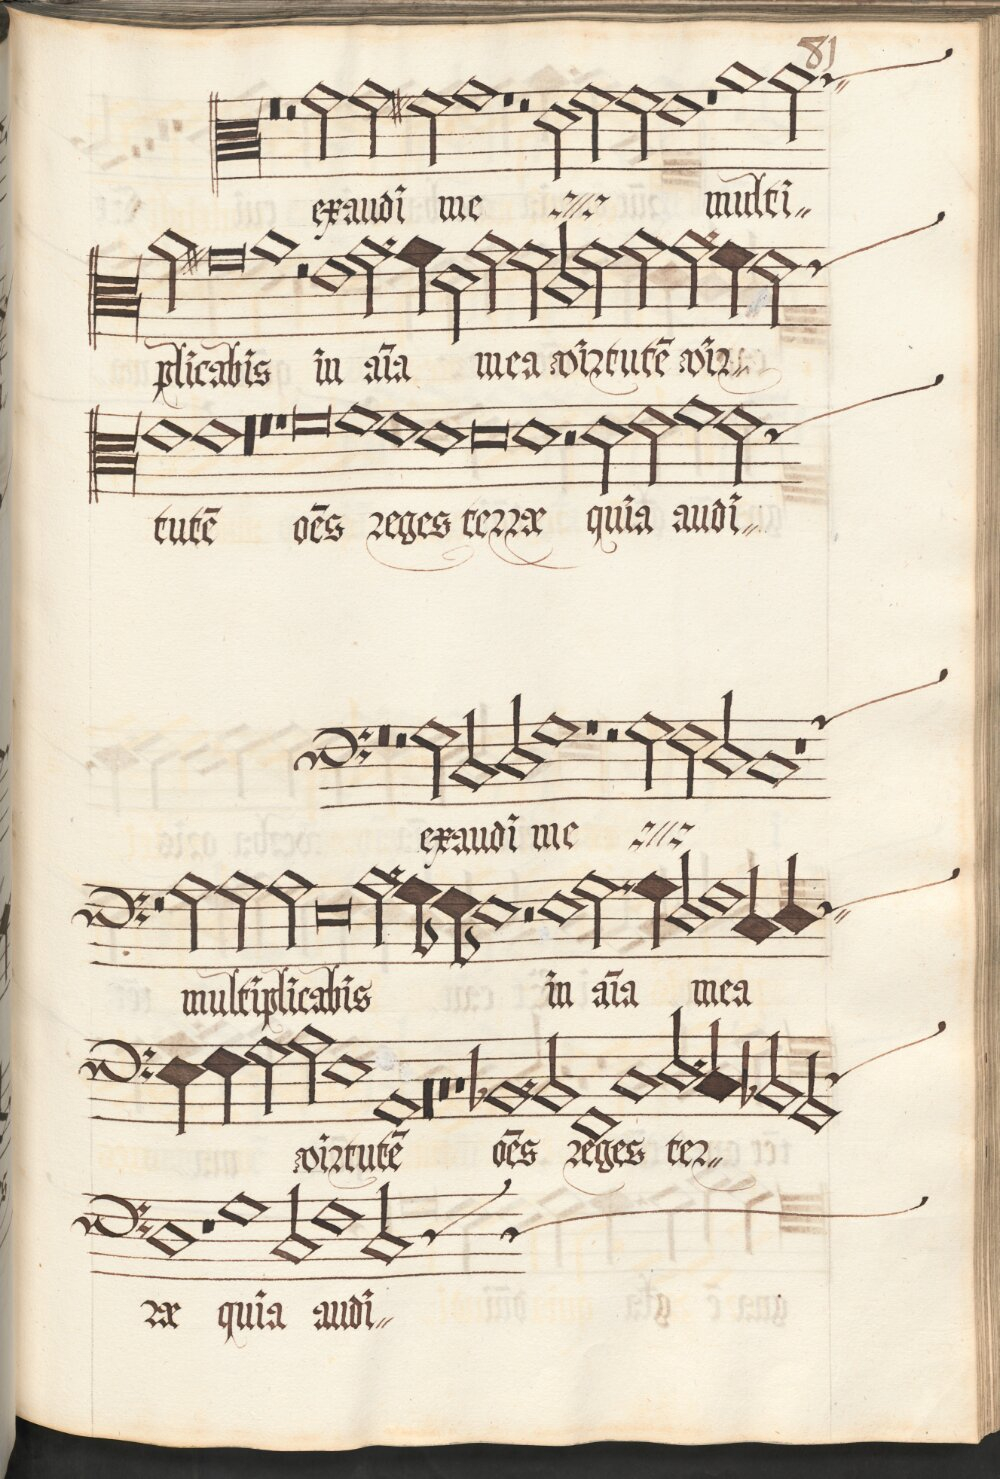 81
exaudi me multi〃
plicabis in aīa mea virtutē vir〃
tutē oēs reges terræ quia audi〃
exaudi me
multiplicabis in aīa mea
virtutē oēs reges ter〃
ræ quia audi〃